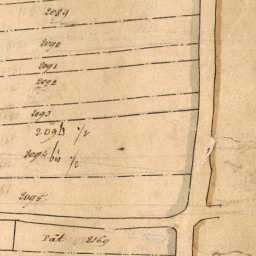 2089
2090
2091
2092
2093
2094 1/2
2094 bis 1/2
2095
Tát 2169